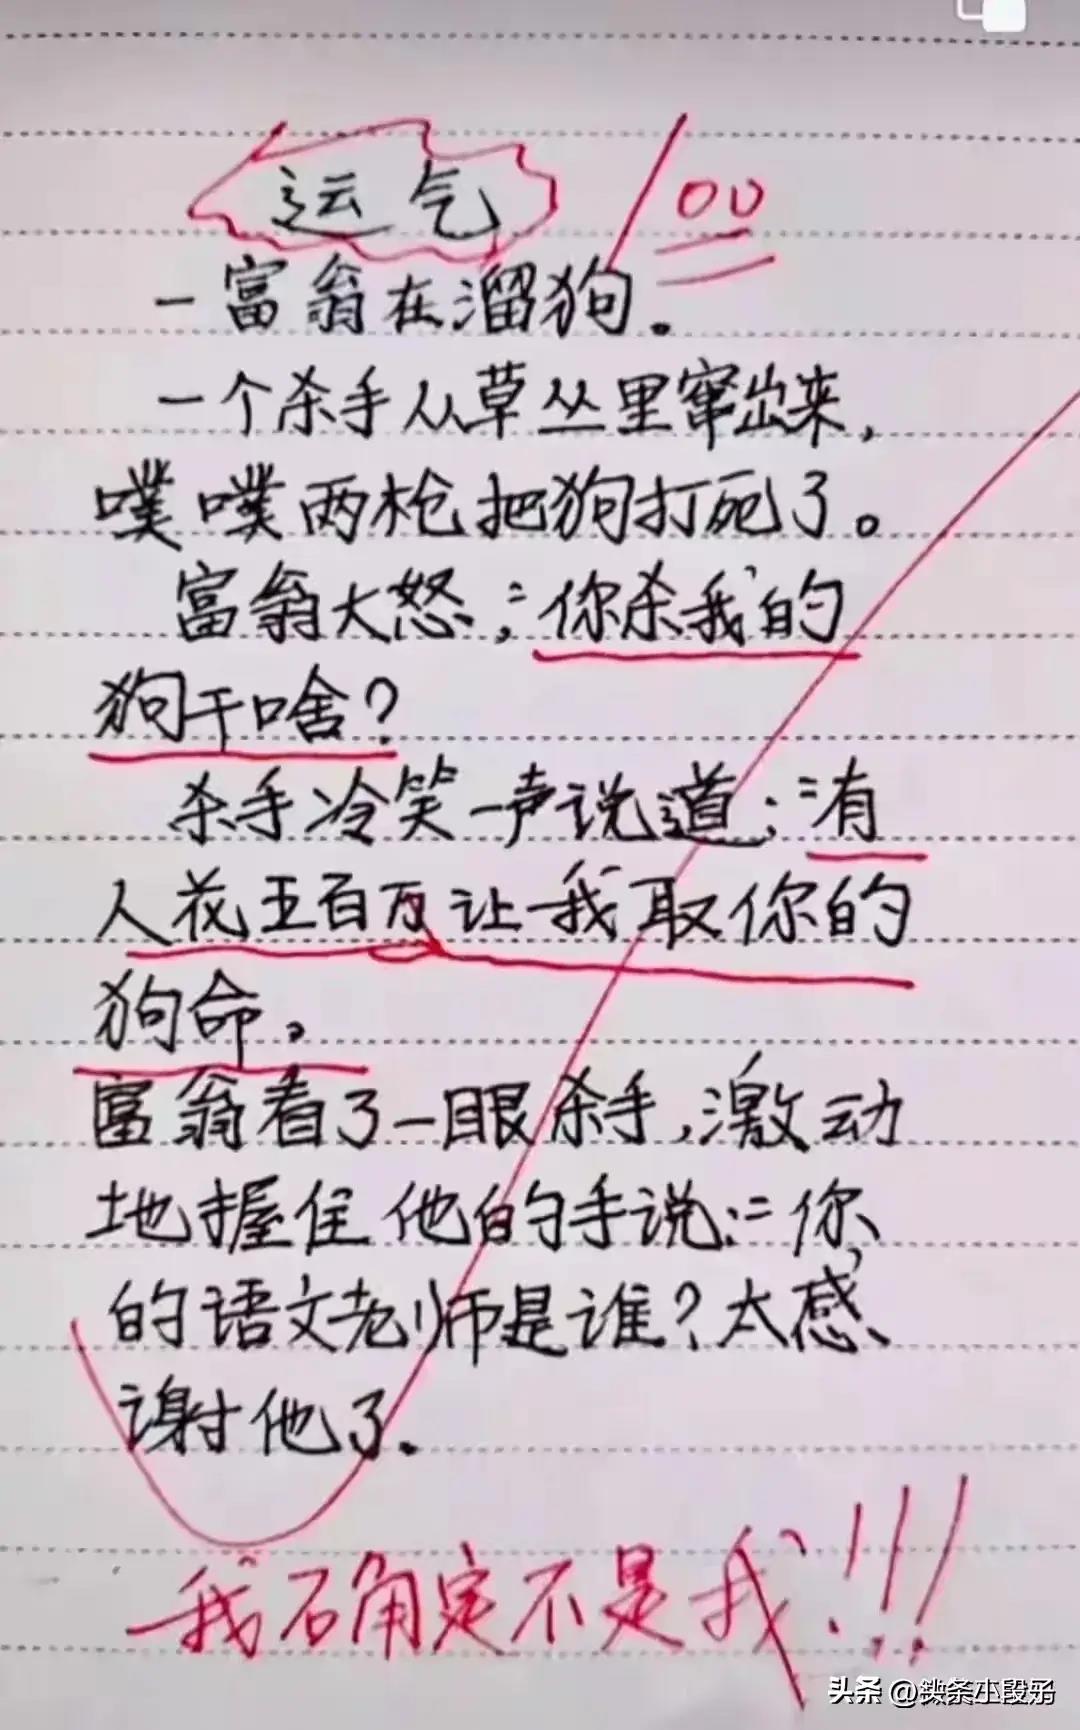 运气
100
一富翁在溜狗。
一个杀手从草丛里窜出来,
噗噗两枪把狗打死了。
富翁大怒:“你杀我的
狗干啥?
杀手冷笑一声说道:“有
人花五百万让我取你的
狗命。
富翁看了一眼杀手,激动
地握住他的手说:“你
的语文老师是谁?太感
谢他了.
我确定不是我!!!
头条 @铁条小段子